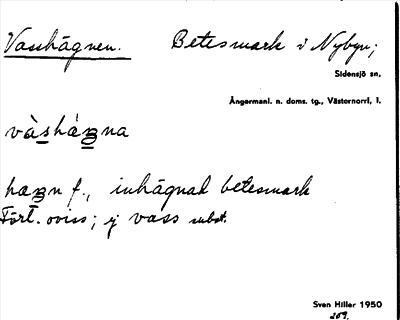 Vasshägnen. Betesmark i Nybyn;
Sidensjö sn,
Ångermanl. n. doms. tg., Västernorrl. l.
vàs̲há̤ʒ̲na
hæʒn f., inhägnad betesmark
Fört. oviss; ej vass subst.
Sven Hiller 1950
209.